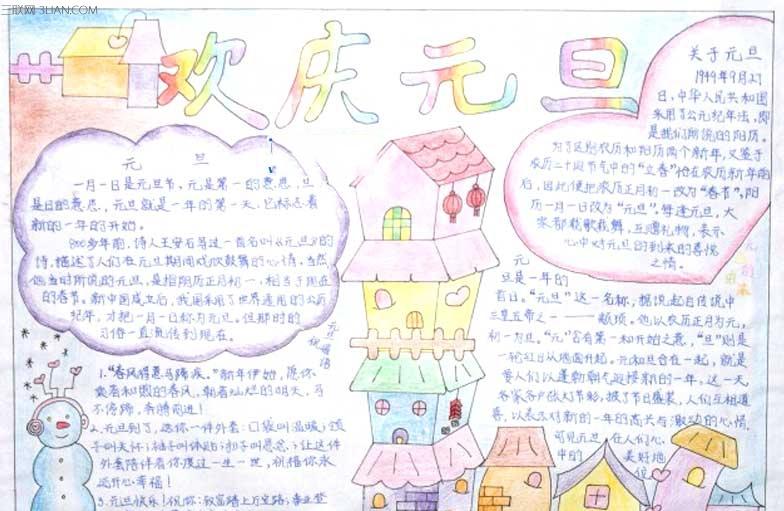 三联网 3LIAN.COM
欢庆元旦
元 旦
一月一日是元旦节,元是第一的意思,旦
是日的意思,元旦就是一年的第一天,它标志着
新的一年的开始。
800多年前,诗人王安石写过一首名叫《元旦》的
诗,描述了人们在元旦期间欢欣鼓舞的心情,当然
他当时所说的元旦,是指阴历正月初一,相当于现在
的春节。新中国成立后,我国采用了世界通用的公历
纪年,才把一月一日称为元旦。但那时的
习俗一直流传到现在。
关于元旦
1949年9月27
日,中华人民共和国
采用了公元纪年法,即
是我们所说的阳历。
为了区别农历和阳历两个新年,又鉴于
农历二十四节气中的“立春”恰在农历新年前
后,因此便把农历正月初一改为“春节”,阳
历一月一日改为“元旦”。每逢元旦,大
家都载歌载舞,互赠礼物,表示
心中对元旦的到来的喜悦
之情。
元旦祝福语
1.“春风得意马蹄疾。”新年伊始,愿你
乘着和煦的春风,朝着灿烂的明天,马
不停蹄,奔腾前进!
2.元旦到了,送你一件外套:口袋叫温暖;领
子叫关怀;袖子叫体贴;扣子叫思念;让这件
外套陪伴着你度过一生一世,祝福你永
远开心幸福!
3.元旦快乐!祝你:致富踏上万宝路;事业登
元
旦是一年的
首日。“元旦”这一名称,据说起自传说中
三皇五帝之一——颛顼。他以农历正月为元,
初一为旦。“元”含有第一和开始之意,“旦”则是
一轮红日从地面升起。元和旦合在一起,就是
要人们以蓬勃朝气迎接新的一年,这一天
各家各户张灯节彩,披了节日盛装,人们互相道
喜,以表示对新的一年的高兴与激动的心情。
可见元旦在人们心
中的 美好地
位。